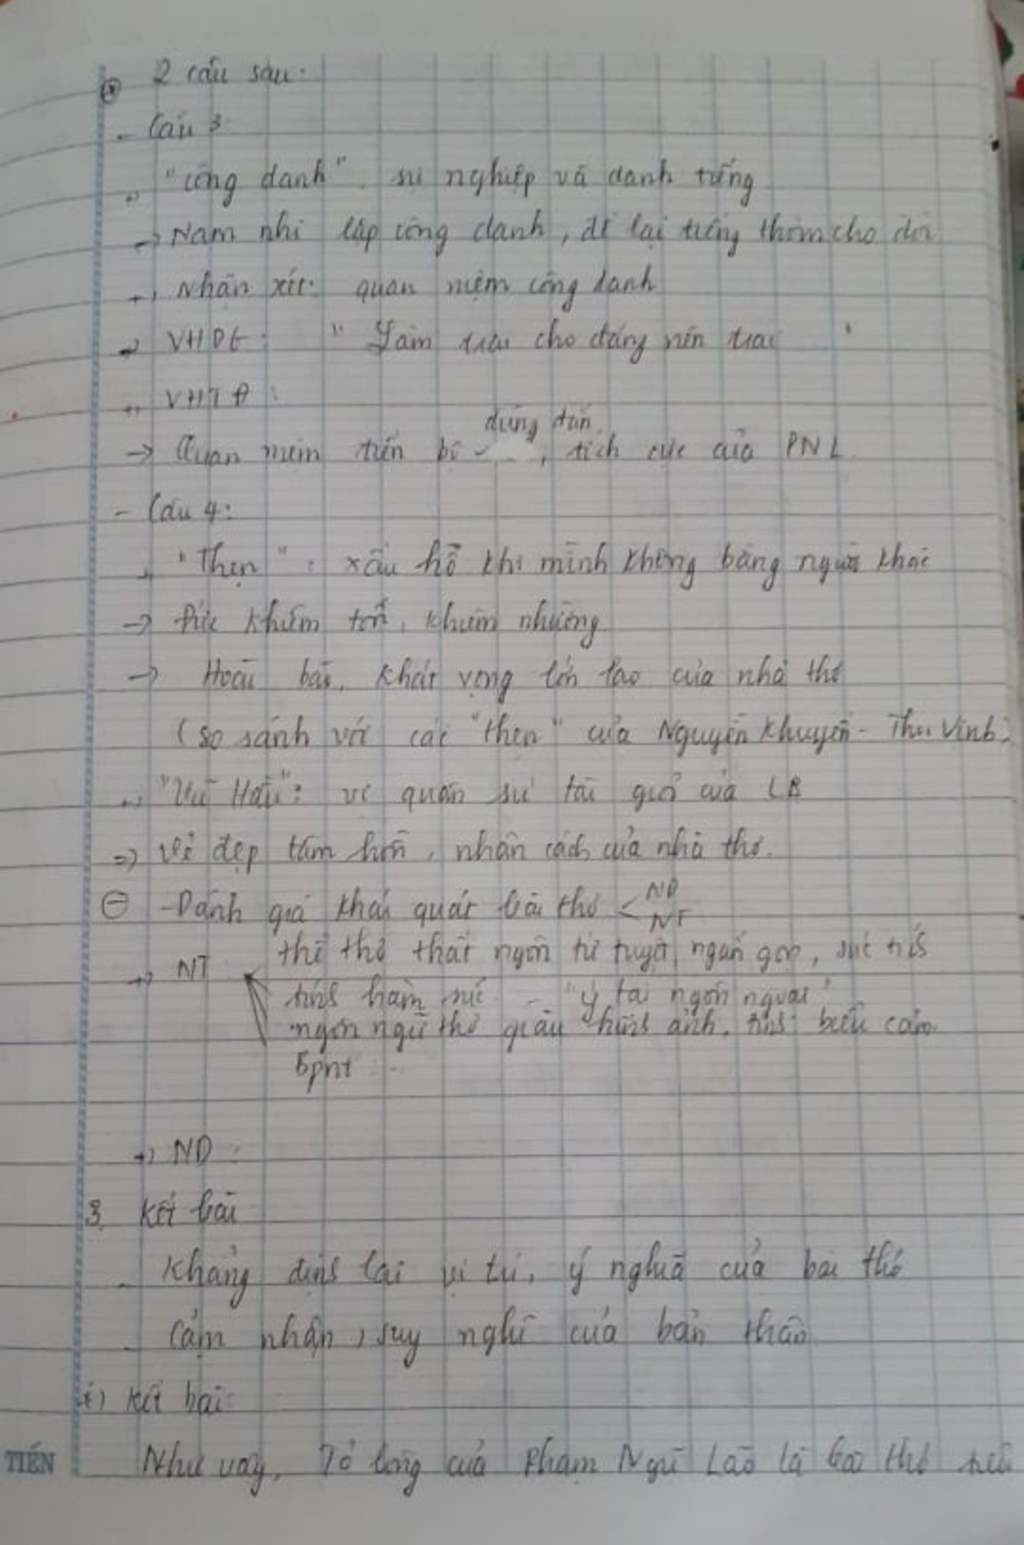 2 câu sau:
- Câu 3:
+, "công danh": sự nghiệp và danh tiếng
→ Nam nhi lập công danh, để lại tiếng thơm cho đời
+, Nhận xét: quan niệm công danh
→ VHDG: "Làm trai cho đáng nên trai"
+, VHTĐ:
đúng đắn
→ Quan niệm tiến bộ, tích cực của PNL
- Câu 4:
+, "Thẹn": xấu hổ khi mình không bằng người khác
→ Đức khiêm tốn, khiêm nhường
→ Hoài bão, khát vọng lớn lao của nhà thơ
(so sánh với cái "thẹn" của Nguyễn Khuyến - Thu Vịnh)
+, "Vũ Hầu": vị quân sư tài giỏi của LB
=> Vẻ đẹp tâm hồn, nhân cách của nhà thơ.
- Đánh giá khái quát bài thơ < ND
NT
+) NT thể thơ thất ngôn tứ tuyệt ngắn gọn, súc tích
tính hàm súc - "ý tại ngôn ngoại"
ngôn ngữ thơ giàu hình ảnh, tính biểu cảm
Bpnt
+) ND:
3. Kết bài
- Khẳng định lại vị trí, ý nghĩa của bài thơ
- Cảm nhận, suy nghĩ của bản thân
*) Kết bài:
TIẾN Như vậy, Tỏ lòng của Phạm Ngũ Lão là bài thơ